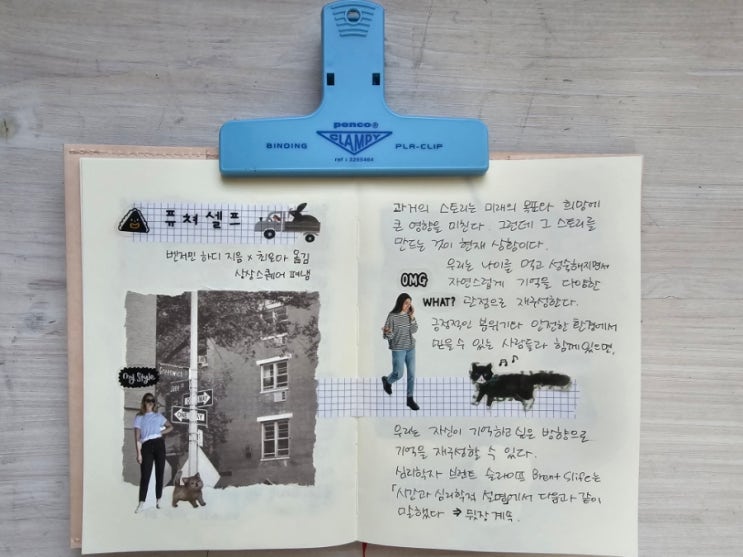 penco®
CLAMPY
BINDING PLA-CLIP
퓨쳐셀프
벤저민 하디 지음 × 최은아 옮김
상상스퀘어 펴냄
My Style
ONE WAY
과거의 스토리는 미래의 목표와 희망에
큰 영향을 미친다. 그런데 그 스토리를
만드는 것이 현재 상황이다.
우리는 나이를 먹고 성숙해지면서
자연스럽게 기억을 다양한
관점으로 재구성한다.
OMG
WHAT?
긍정적인 분위기와 안전한 환경에서
믿을 수 있는 사람들과 함께 있으면,
우리는 자신이 기억하고 싶은 방향으로
기억을 재구성할 수 있다.
심리학자 브런트 슬라이프 Brent Slife는
「시간과 심리학적 설명에서 다음과 같이
말했다 ⇒ 뒷장 계속.